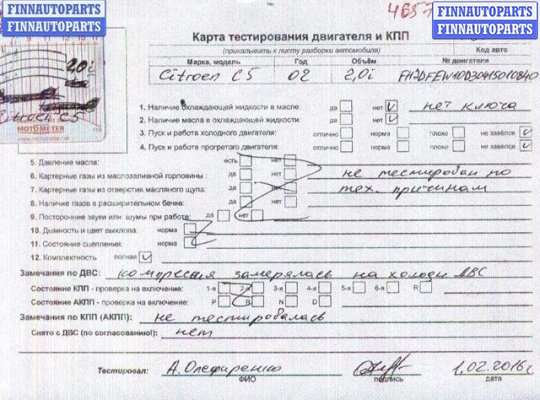 FINNAUTOPARTS
FINNAUTOPARTS
FINNAUTOPARTS
FINNAUTOPARTS
4657
Карта тестирования двигателя и КПП
(прикалывать к листу разборки автомобиля)
Код авто
Марка, модель Год Объём № двигателя
Citroen C5 02 2,0i
2,0i
Citroen C5
MOTOMETER
1. Наличие охлаждающей жидкости в масле: да нет нет ключа
2. Наличие масла в охлаждающей жидкости: да нет
3. Пуск и работа холодного двигателя: отлично норма плохо не завелся
4. Пуск и работа прогретого двигателя: отлично норма плохо не завелся
5. Давление масла: есть нет
6. Картерные газы из маслозаливной горловины: да нет не тестировал по
7. Картерные газы из отверстия масляного щупа: да нет тех. причинам
8. Наличие газов в расширительном бачке: да нет
9. Посторонние звуки или шумы при работе: да нет
10. Дымность и цвет выхлопа: норма
11. Состояние сцепления: норма
12. Комплектность полная
Замечания по ДВС: компресия замерялась на холодн ДВС
Состояние КПП - проверка на включение: 1-я 2-я 3-я 4-я 5-я 6-я R
Состояние АКПП - проверка на включение: P R N D
Замечания по КПП (АКПП): не тестировалась
Снято с ДВС (по согласованию!): нет
Тестировал: А. Олефиренко 1.02.2016г
ФИО подпись дата